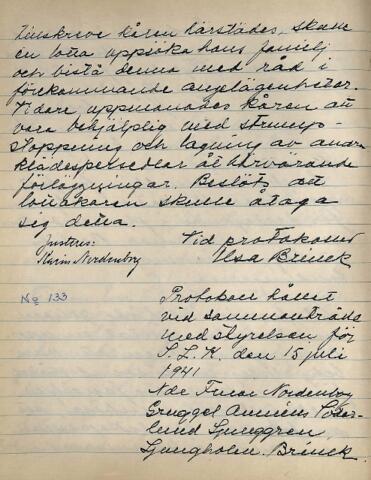 tinskreve kåren härstädes, skulle
en lotta uppsöka hans familj
och bistå denna med råd i
förekommande angelägenheter.
Vidare uppmanades kåren att
vara behjälplig med strump-
stoppning och lagning av andra
klädespersedlar åt härvarande
förläggningar. Beslöts att
lottakåren skulle åtaga
sig detta.
Justeras: Vid protokollet
Karin Nordenborg Elsa Brinck
No 133 Protokoll hållet
vid sammanträde
med styrelsen för
S. L. K. den 15 juli
1941
Nde Fruar Nordenborg
Gruggel Söder-
lund Ljunggren,
Ljungholm. Brinck.